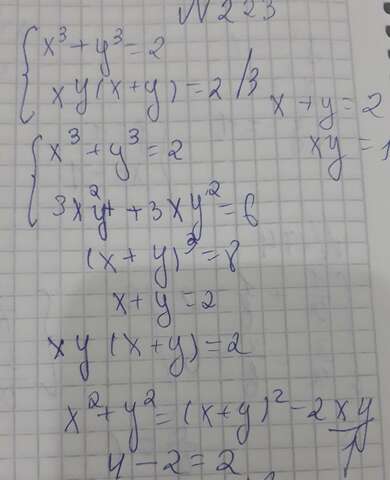 N 223
x³ + y³ = 2
xy(x+y) = 2 /3
x + y = 2
x³ + y³ = 2
xy = 1
3x²y + 3xy² = 6
(x + y)³ = 8
x + y = 2
xy (x+y) = 2
x² + y² = (x+y)² - 2xy
4 - 2 = 2